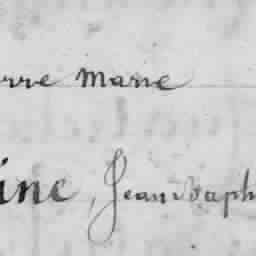 rre Marie
ine, Jean Baph